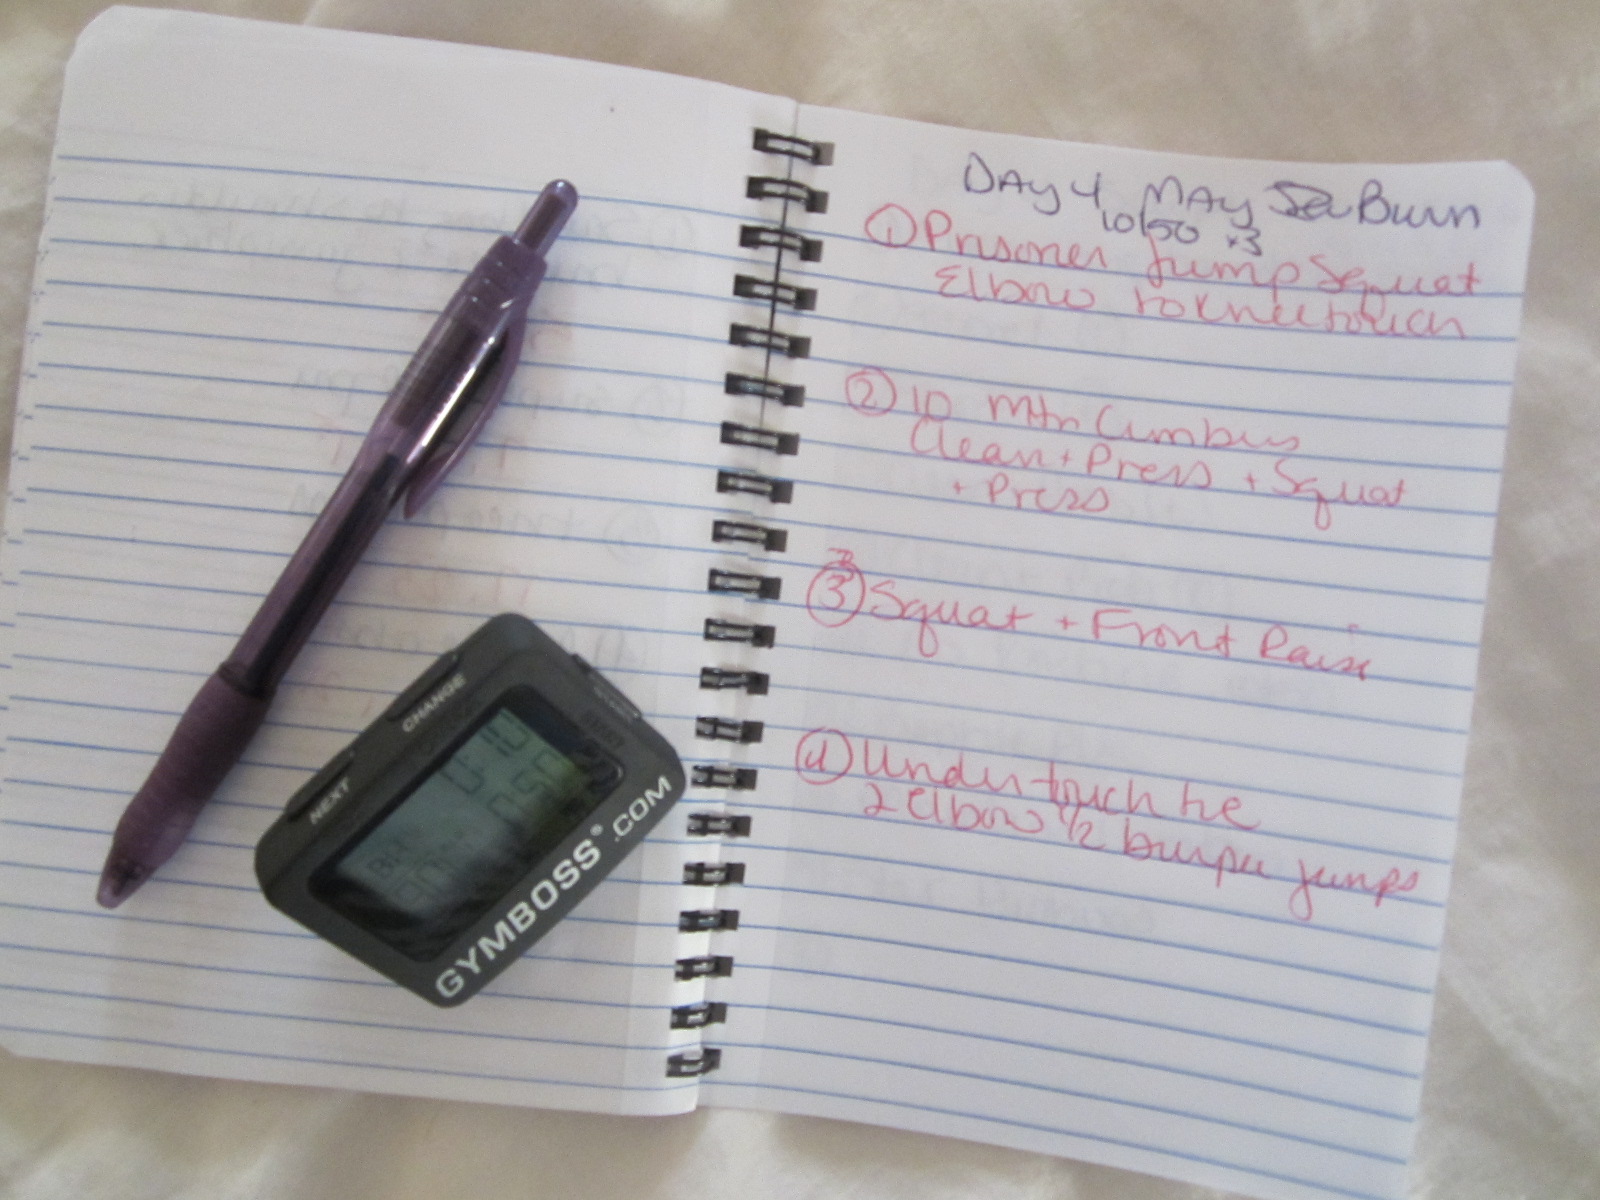 DAY 4 MAY Burn
10/50 x3
① Prisoner Jump Squat
Elbow to knee touch
② 10 Mtn Cimbus
Clean + Press + Squat
+ Press
③ Squat + Front Raise
④ Under touch he
2 Elbow 1/2 burpee jumps
CHANGE
NEXT
GYMBOSS.COM